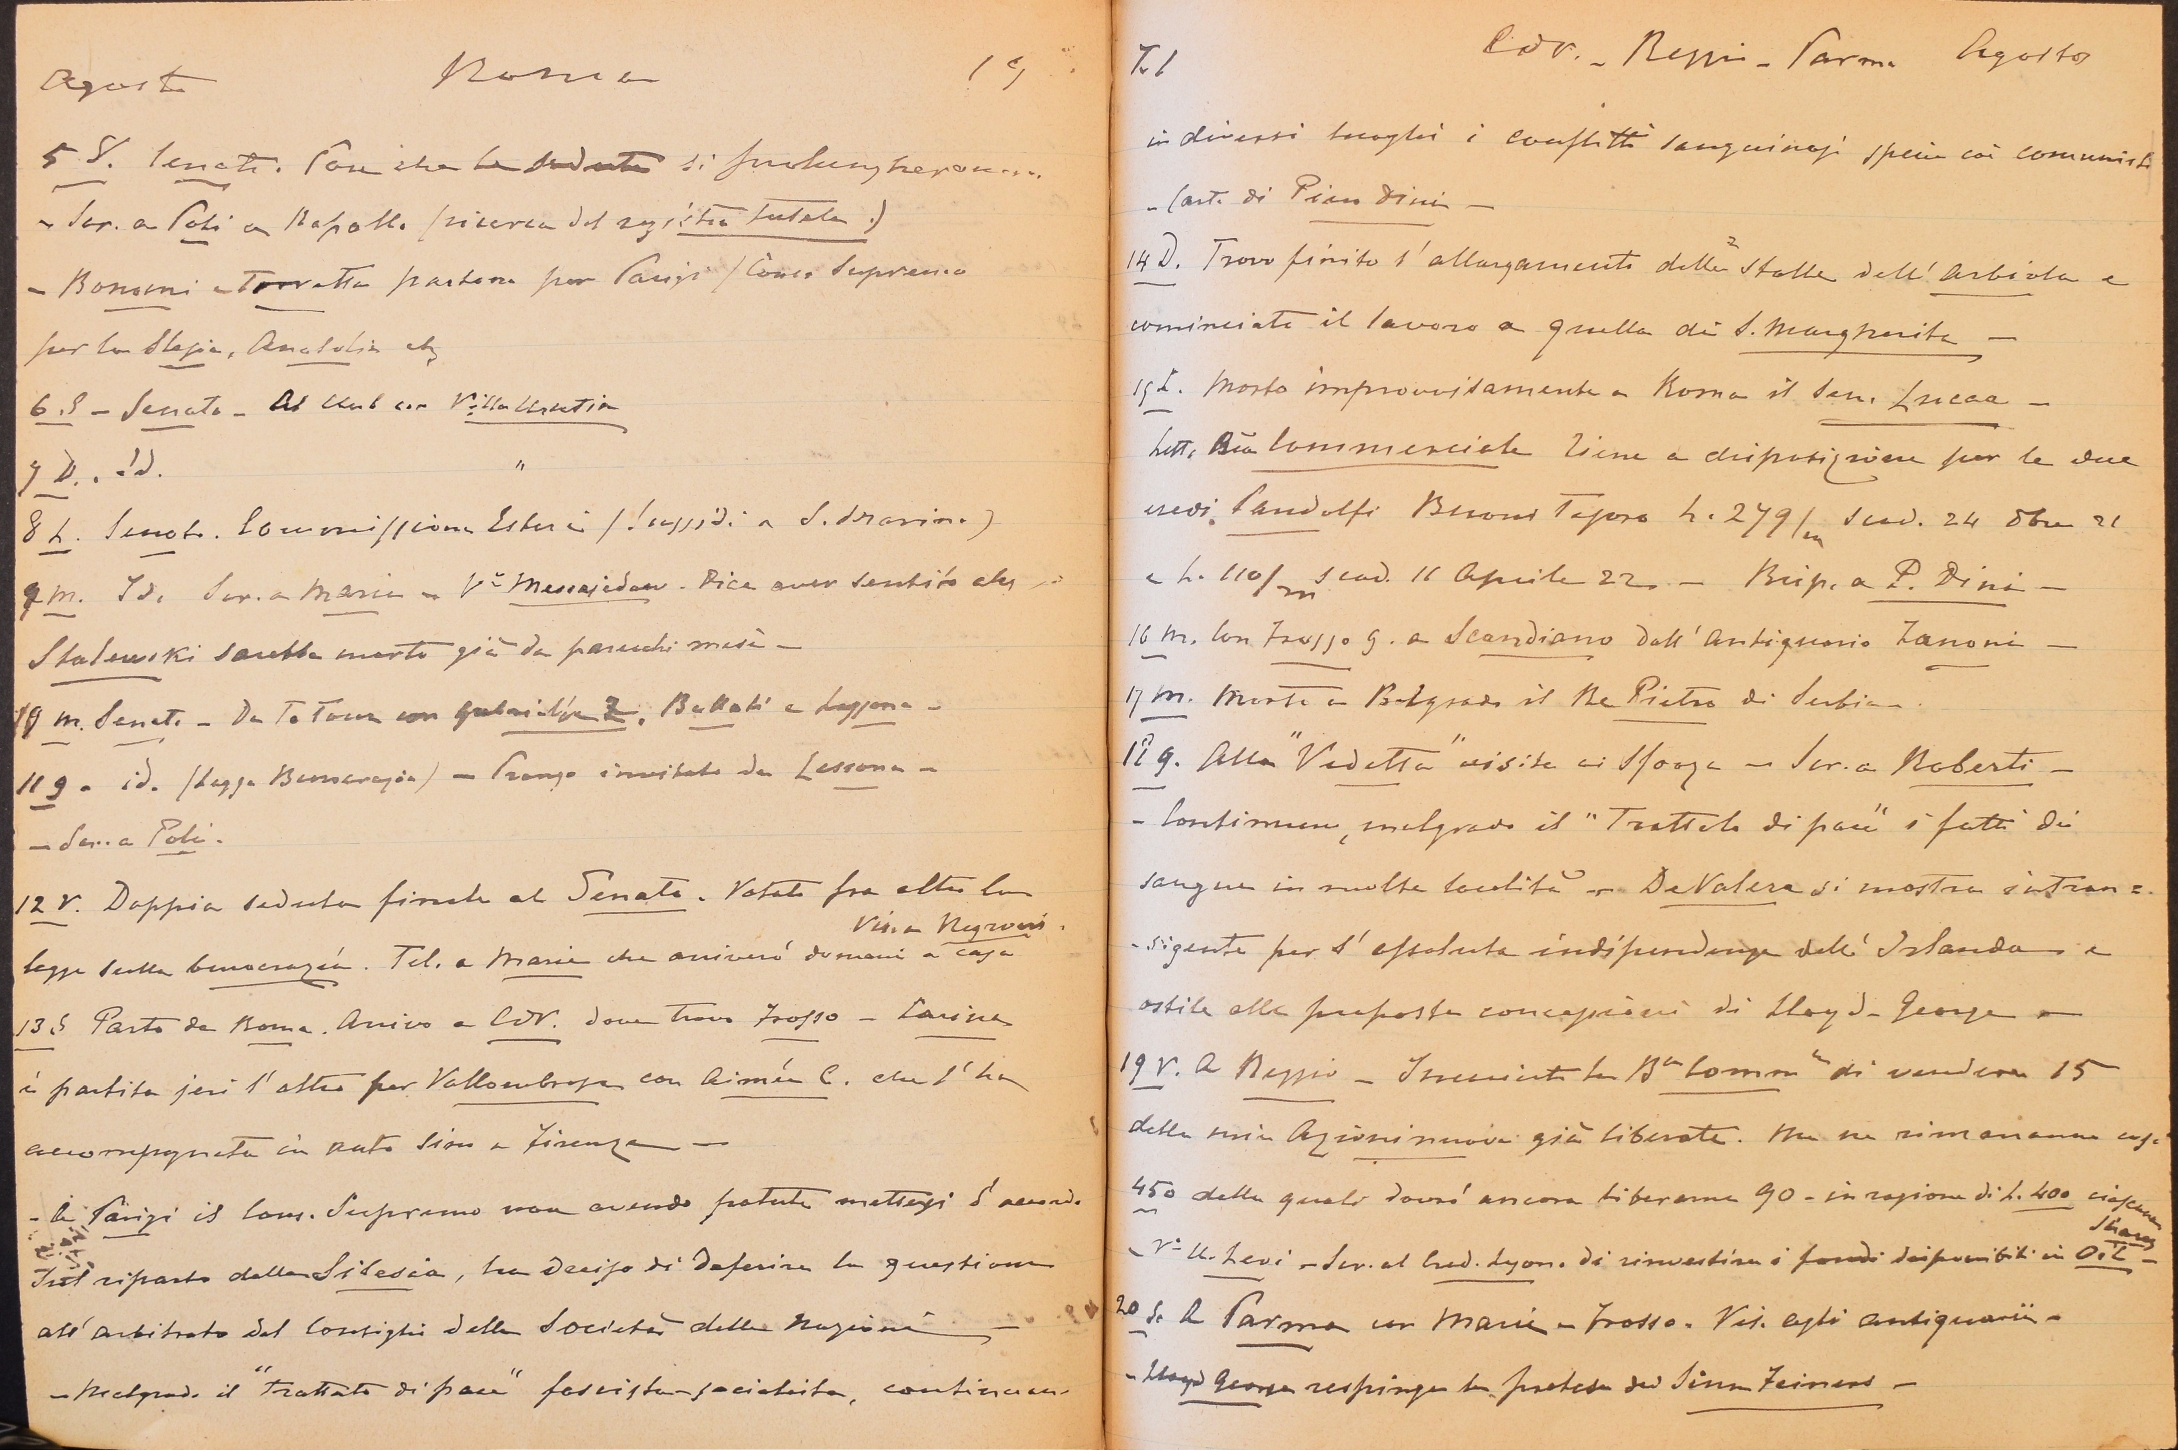 Agosto Roma 19
5 V. Senato. Pare che le sedute si prolungheranno.
- Scr. a Poli a Rapallo (ricerca del registro tutela.)
- Bonomi e Torretta partono per Parigi (Cons. Supremo
per la Slesia, Anatolia etc
6.S - Senato - Al Club con Villa Urrutia
7 D. . id. "
8 L. Senato. Commissione Esteri (Sussidi a S. Marino)
9 M. Id. Scr. a Maria - Va Messajedow. Dice aver sentito che
Stalewski sarebbe morto già da parecchi mesi -
10 M. Senato - Da La Tour con Z. Bollati e Lessona -
11 G - id. (Legge Burocrazia) - Pranzo invitato da Lessona -
- Scr. a Poli.
12 V. Doppia seduta finale al Senato. Votata fra altre la
Vis. a Negroni.
legge sulla burocrazia. Tel. a Maria che arriverò domani a casa
13.S Parto da Roma. Arrivo a CdV. dove trovo Frosso - Carina
è partita jeri l'altro per Vallombrosa con Aimée C. che l'ha
accompagnata in auto sino a Firenze -
- A Parigi il Cons. Supremo non avendo potuto mettersi d'accordo
sul riparto della Silesia, ha deciso di deferire la questione
all'arbitrato del Consiglio della Società delle Nazioni -
- Malgrado il "Trattato di pace" fascista-socialista, continuano
CdV. - Reggio - Parma Agosto
in diversi luoghi i conflitti sanguinosi specie coi comunisti
- Carta di Piero Dini -
14 D. Trovo finito l'allargamento delle 2 stalle dell'Arbiola e
cominciato il lavoro a quella di S. Margherita -
15 L. Morto improvvisamente a Roma il Sen. Lucca -
Lett. Bca Commerciale tiene a disposizione per le due
eredi Pandolfi Buoni Tesoro L. 279/m scad. 24 Xbre 21
e L. 110/m scad. 11 Aprile 22. - Risp. a P. Dini -
16 M. Con Frosso G. a Scandiano dall'antiquario Zanoni -
17 M. Morto a Belgrado il Re Pietro di Serbia -
18 G. Alla "Vedetta" visita ai Sforza - Scr. a Roberti -
- Continuano, malgrado il "Trattato di pace" i fatti di
sangue in molte località - De Valera si mostra intran=
-sigente per l'assoluta indipendenza dell'Irlanda e
ostile alle proposte concessioni di Lloyd-George -
19 V. A Reggio - Incaricato la Bca Comm.le di vendere 15
delle mie Azioni nuove già liberate. Me ne rimananno così
450 delle quali dovrò ancora liberarne 90 - in ragione di L. 400 ciascuna
Shares
- Va U. Levi - Scr. al Cred. Lyon. di rinvestire i fondi disponibili in Oil -
20 S. A Parma con Maria e Frosso. Vis. agli antiquarii -
- Lloyd George respinge la pretesa dei Sinn Feiners -